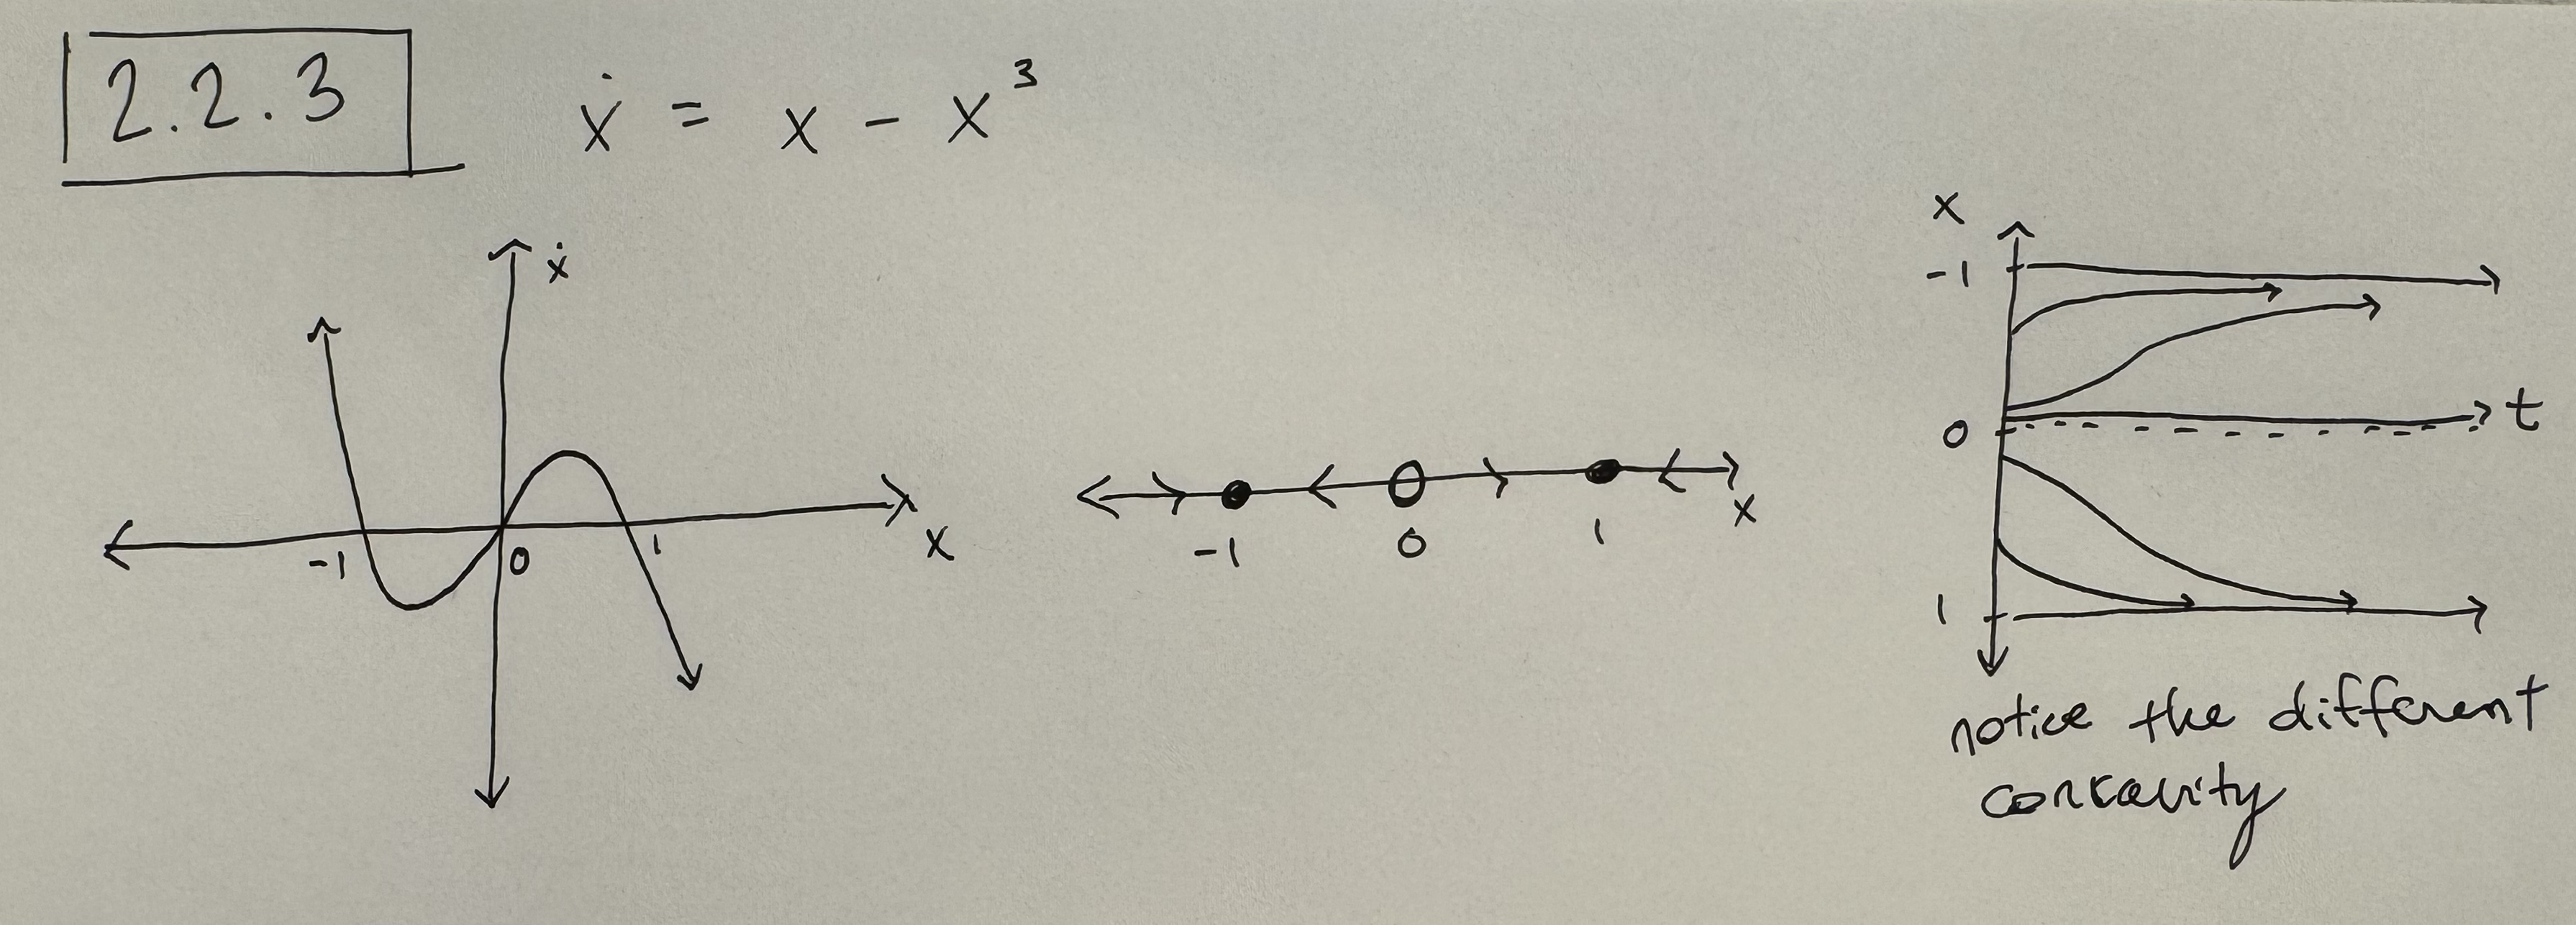 2.2.3
ẋ = x - x³
ẋ
-1
0
1
x
-1
0
1
x
x
-1
0
t
1
notice the different
concavity